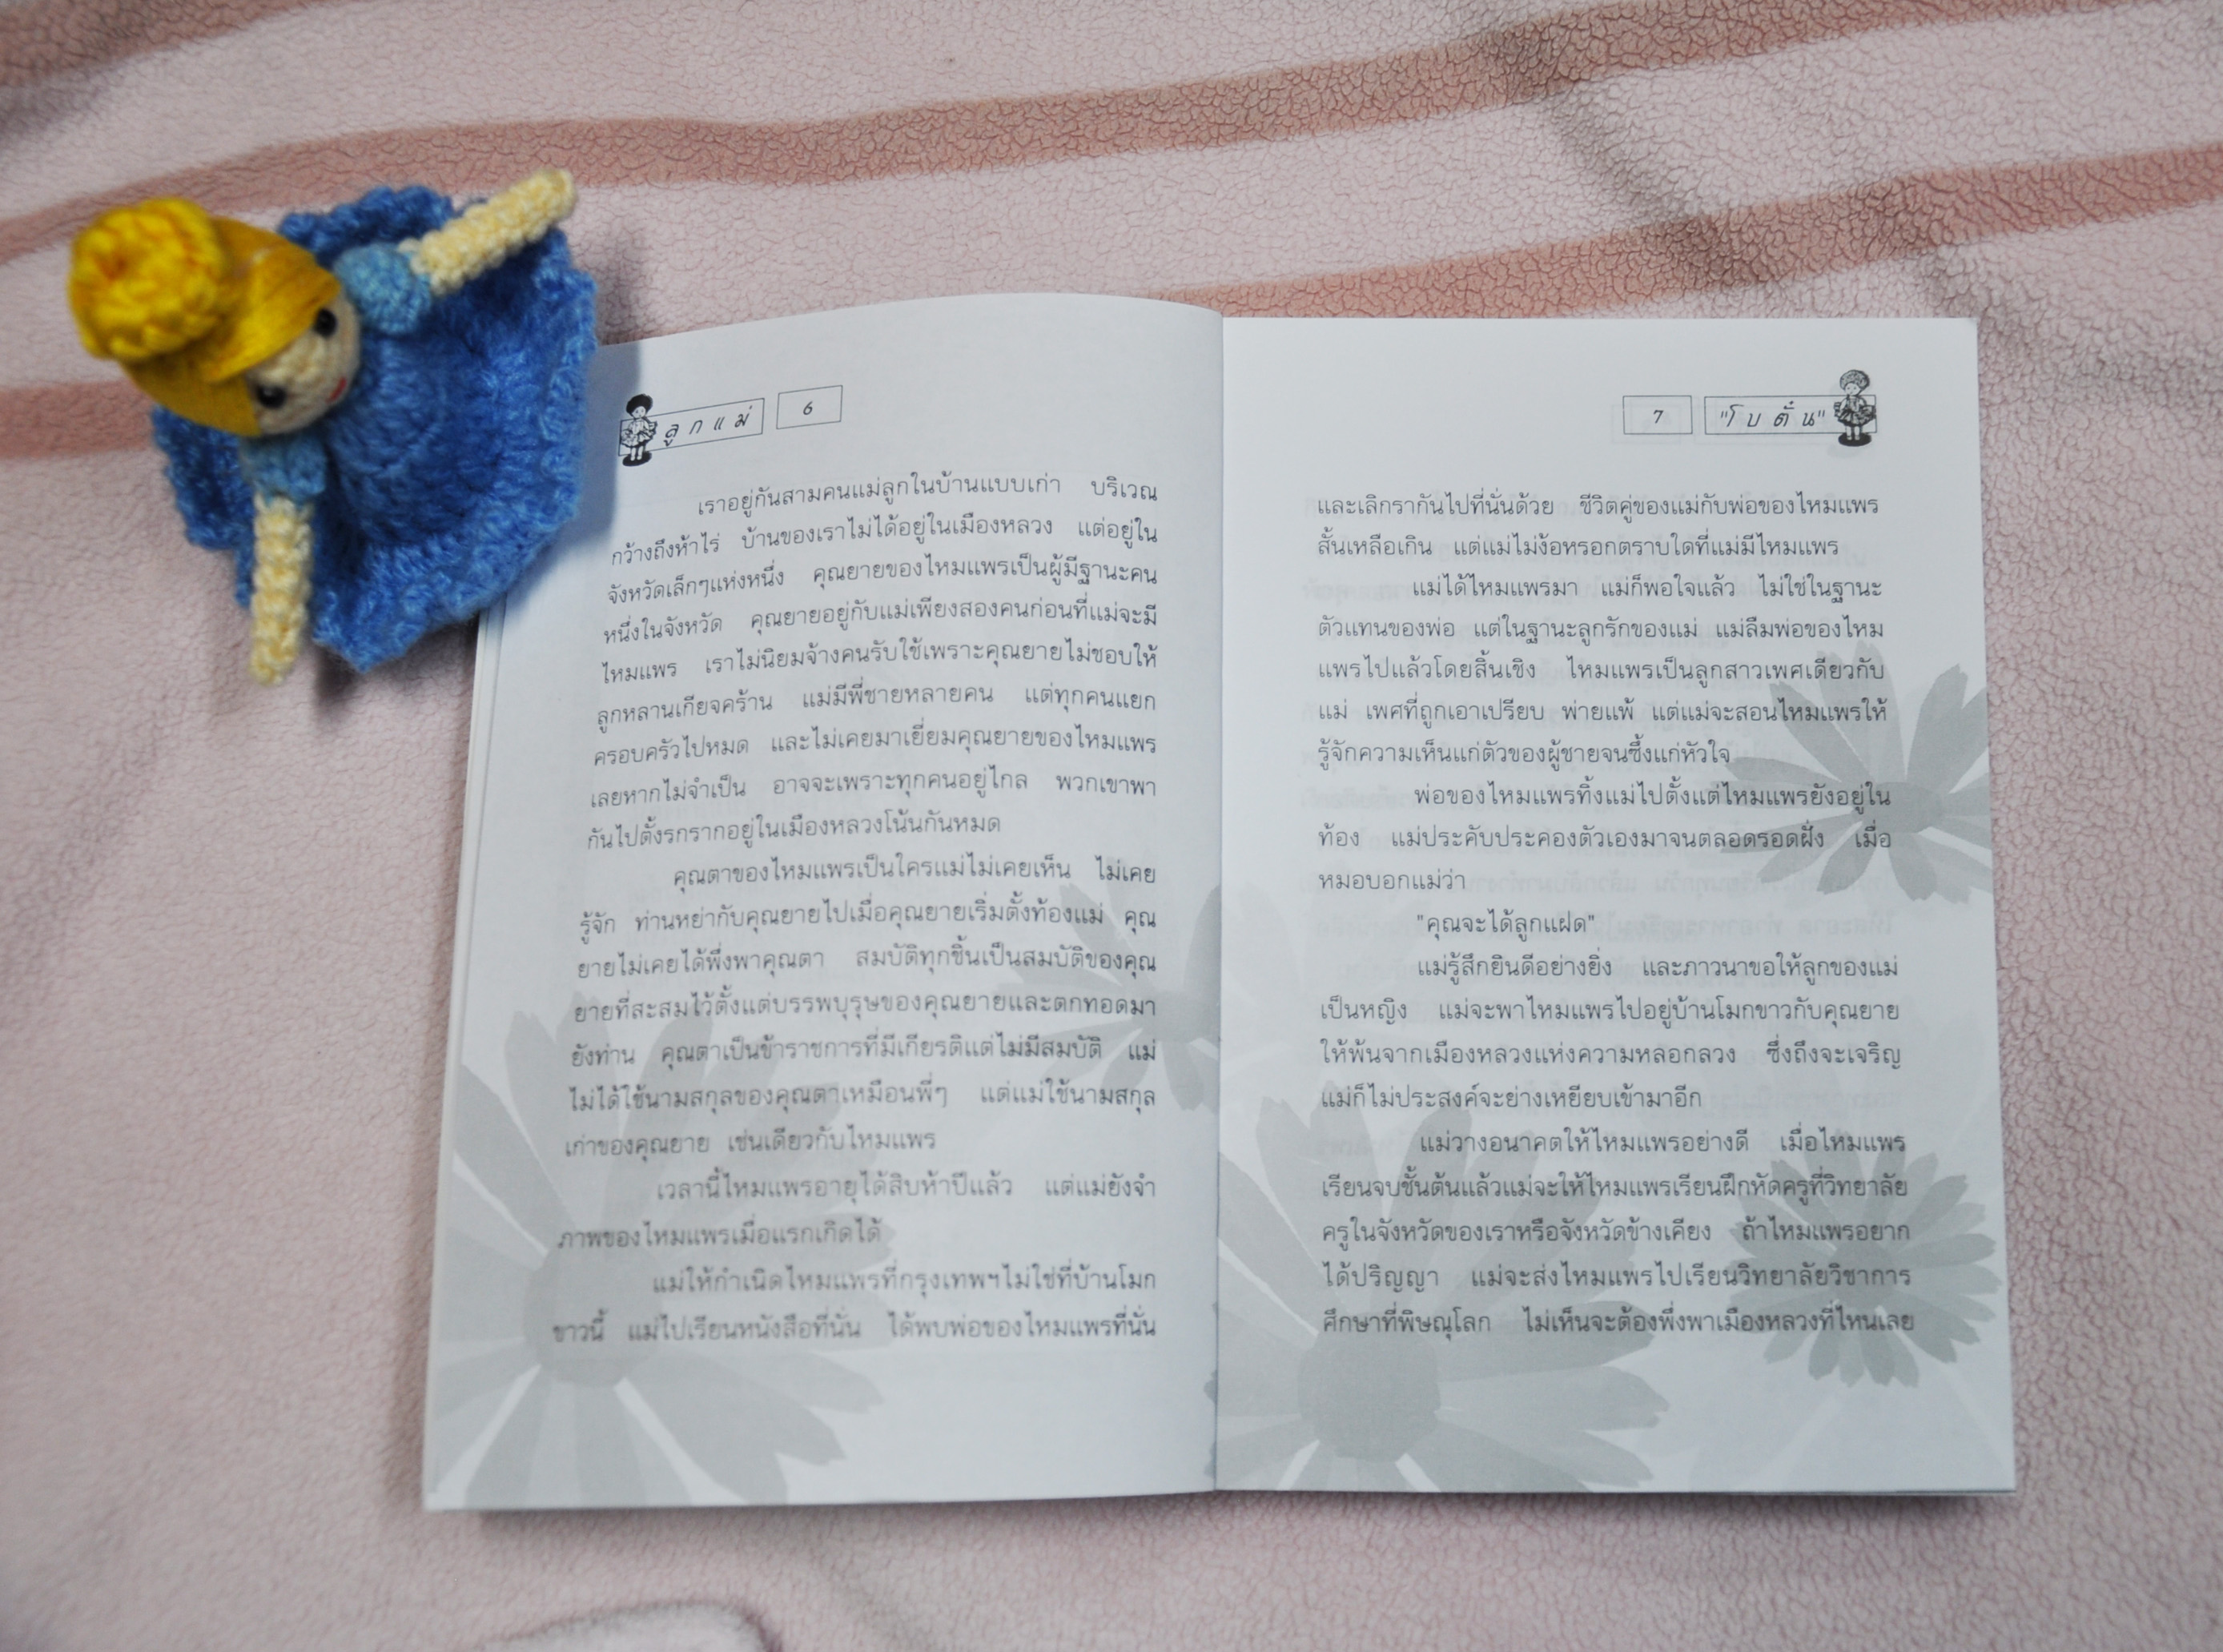 ลูกแม่ 6
เราอยู่กันสามคนแม่ลูกในบ้านแบบเก่า บริเวณ
กว้างถึงห้าไร่ บ้านของเราไม่ได้อยู่ในเมืองหลวง แต่อยู่ใน
จังหวัดเล็กๆแห่งหนึ่ง คุณยายของไหมแพรเป็นผู้มีฐานะคน
หนึ่งในจังหวัด คุณยายอยู่กับแม่เพียงสองคนก่อนที่แม่จะมี
ไหมแพร เราไม่นิยมจ้างคนรับใช้เพราะคุณยายไม่ชอบให้
ลูกหลานเกียจคร้าน แม่มีพี่ชายหลายคน แต่ทุกคนแยก
ครอบครัวไปหมด และไม่เคยมาเยี่ยมคุณยายของไหมแพร
เลยหากไม่จำเป็น อาจจะเพราะทุกคนอยู่ไกล พวกเขาพา
กันไปตั้งรกรากอยู่ในเมืองหลวงโน้นกันหมด
คุณตาของไหมแพรเป็นใครแม่ไม่เคยเห็น ไม่เคย
รู้จัก ท่านหย่ากับคุณยายไปเมื่อคุณยายเริ่มตั้งท้องแม่ คุณ
ยายไม่เคยได้พึ่งพาคุณตา สมบัติทุกชิ้นเป็นสมบัติของคุณ
ยายที่สะสมไว้ตั้งแต่บรรพบุรุษของคุณยายและตกทอดมา
ยังท่าน คุณตาเป็นข้าราชการที่มีเกียรติแต่ไม่มีสมบัติ แม่
ไม่ได้ใช้นามสกุลของคุณตาเหมือนพี่ๆ แต่แม่ใช้นามสกุล
เก่าของคุณยาย เช่นเดียวกับไหมแพร
เวลานี้ไหมแพรอายุได้สิบห้าปีแล้ว แต่แม่ยังจำ
ภาพของไหมแพรเมื่อแรกเกิดได้
แม่ให้กำเนิดไหมแพรที่กรุงเทพฯไม่ใช่ที่บ้านโมก
ขาวนี้ แม่ไปเรียนหนังสือที่นั่น ได้พบพ่อของไหมแพรที่นั่น
7 "โบตั๋น"
และเลิกรากันไปที่นั่นด้วย ชีวิตคู่ของแม่กับพ่อของไหมแพร
สั้นเหลือเกิน แต่แม่ไม่ง้อหรอกตราบใดที่แม่มีไหมแพร
แม่ได้ไหมแพรมา แม่ก็พอใจแล้ว ไม่ใช่ในฐานะ
ตัวแทนของพ่อ แต่ในฐานะลูกรักของแม่ แม่ลืมพ่อของไหม
แพรไปแล้วโดยสิ้นเชิง ไหมแพรเป็นลูกสาวเพศเดียวกับ
แม่ เพศที่ถูกเอาเปรียบ พ่ายแพ้ แต่แม่จะสอนไหมแพรให้
รู้จักความเห็นแก่ตัวของผู้ชายจนซึ้งแก่หัวใจ
พ่อของไหมแพรทิ้งแม่ไปตั้งแต่ไหมแพรยังอยู่ใน
ท้อง แม่ประคับประคองตัวเองมาจนตลอดรอดฝั่ง เมื่อ
หมอบอกแม่ว่า
"คุณจะได้ลูกแฝด"
แม่รู้สึกยินดีอย่างยิ่ง และภาวนาขอให้ลูกของแม่
เป็นหญิง แม่จะพาไหมแพรไปอยู่บ้านโมกขาวกับคุณยาย
ให้พ้นจากเมืองหลวงแห่งความหลอกลวง ซึ่งถึงจะเจริญ
แม่ก็ไม่ประสงค์จะย่างเหยียบเข้ามาอีก
แม่วางอนาคตให้ไหมแพรอย่างดี เมื่อไหมแพร
เรียนจบชั้นต้นแล้วแม่จะให้ไหมแพรเรียนฝึกหัดครูที่วิทยาลัย
ครูในจังหวัดของเราหรือจังหวัดข้างเคียง ถ้าไหมแพรอยาก
ได้ปริญญา แม่จะส่งไหมแพรไปเรียนวิทยาลัยวิชาการ
ศึกษาที่พิษณุโลก ไม่เห็นจะต้องพึ่งพาเมืองหลวงที่ไหนเลย